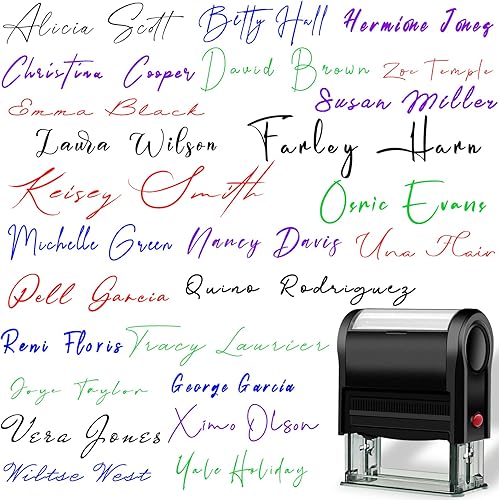 Alicia Scott Bitty Hall Hermione Jones
Christina Cooper David Brown Zoe Temple
Emma Black Susan Miller
Laura Wilson Farley Harn
Keisey Smith Osric Evans
Michelle Green Nancy Davis Una Flair
Pell Garcia Quino Rodriguez
Reni Floris Tracy Laurier
Joye Taylor George Garcia
Vera Jones Ximo Olson
Wiltse West Yale Holiday